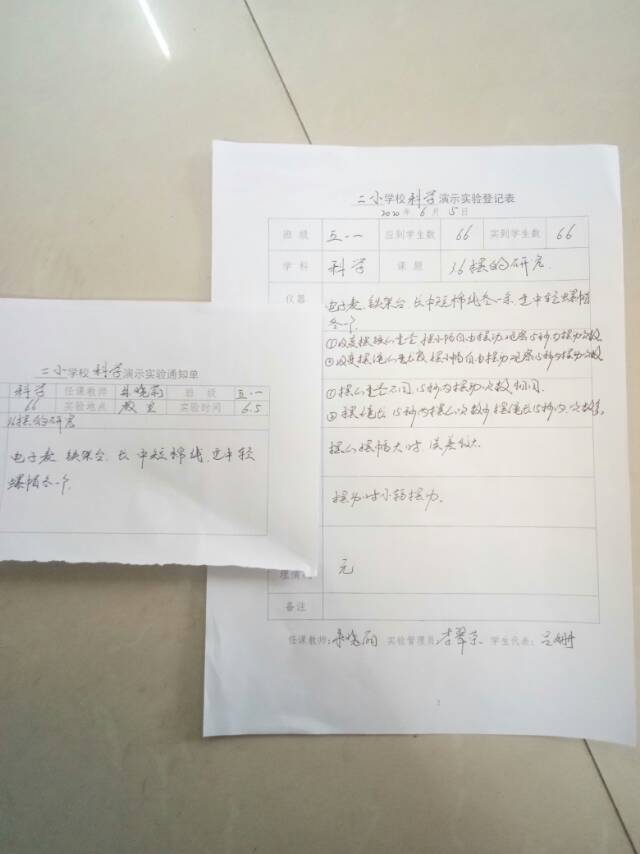 二小学校科学演示实验登记表
2020年6月5日
班级 五.一 应到学生数 66 实到学生数 66
学科 科学 课题 16摆的研究
仪器 电子表、铁架台、长中短棉线各一条、重中轻螺帽
各一个
①改变摆锤的重量 摆小幅自由摆动 观察15秒内摆动次数
②改变摆绳的长度 摆小幅自由摆动 观察15秒内摆动次数
①摆的重量不同,15秒内摆动次数相同.
②摆绳长15秒内摆的次数少 摆绳短15秒内次数多.
摆的摆幅大时 误差较大.
摆动时小弱摆力.
理情况 无
备注
任课教师: 实验管理员: 学生代表:
二小学校科学演示实验通知单
科学 任课教师 班级 五.一
66 实验地点 教室 实验时间 6.5
16摆的研究
电子表、铁架台、长中短棉线、重中轻
螺帽各一个.